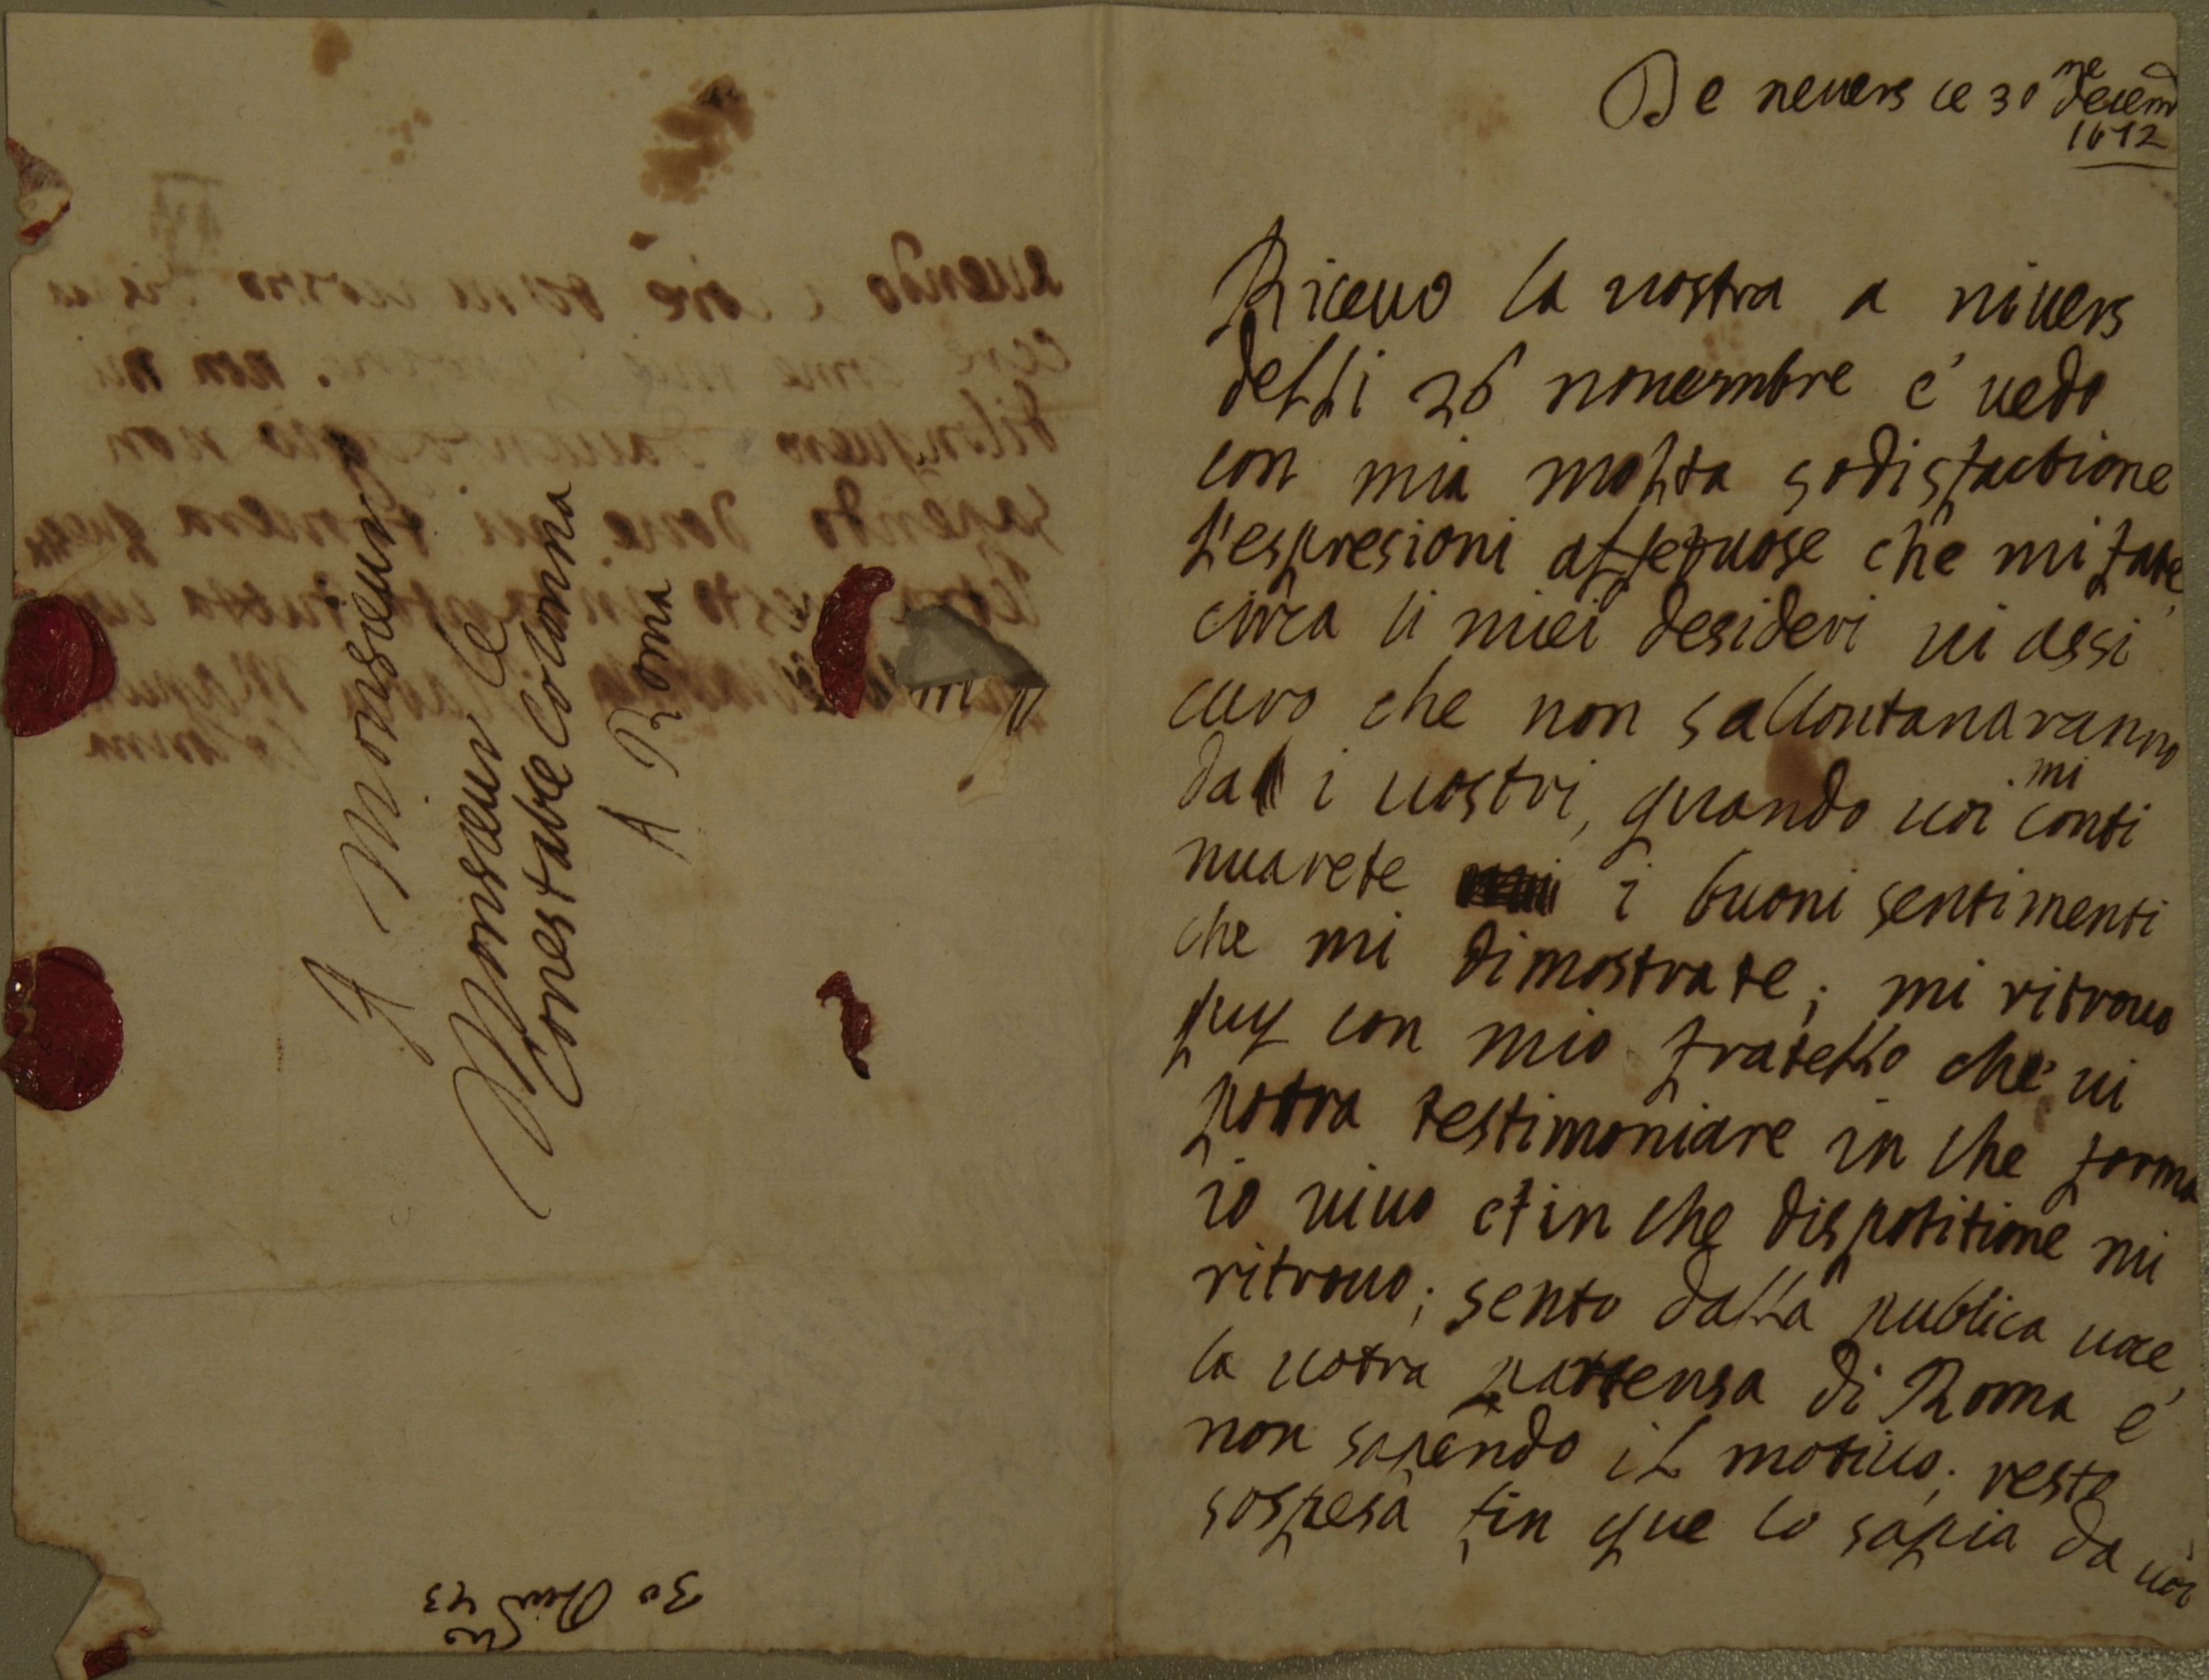 A Monsieur
Monsieur le
Conestable Colonna
A Roma
De neuers ce 30 me decem
1672
Riceuo la uostra a niuers
delli 26 nouembre e' uedo
con mia molta sodisfactione
l'espresioni affetuose che mi fate,
circa li miei desideri ui assi
curo che non sallontanaranno
da i uostri, quando uoi mi conti
nuarete i buoni sentimenti
che mi dimostrate; mi ritrouo
quy con mio fratello che ui
potra testimoniare in che forma
io uiuo et in che dispotitione mi
ritrouo; sento dalla publica uoce,
la uotra partensa di Roma e'
non sapendo il motiuo; resto
sospesa fin que lo sapia da uoi